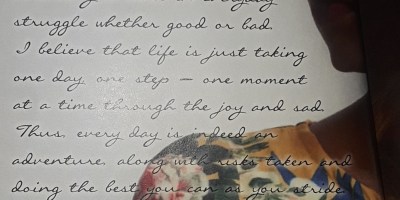 struggle whether good or bad.
I believe that life is just taking
one day, one step — one moment
at a time through the joy and sad.
Thus, every day is indeed an
adventure, along with risks taken and
doing the best you can as you stride